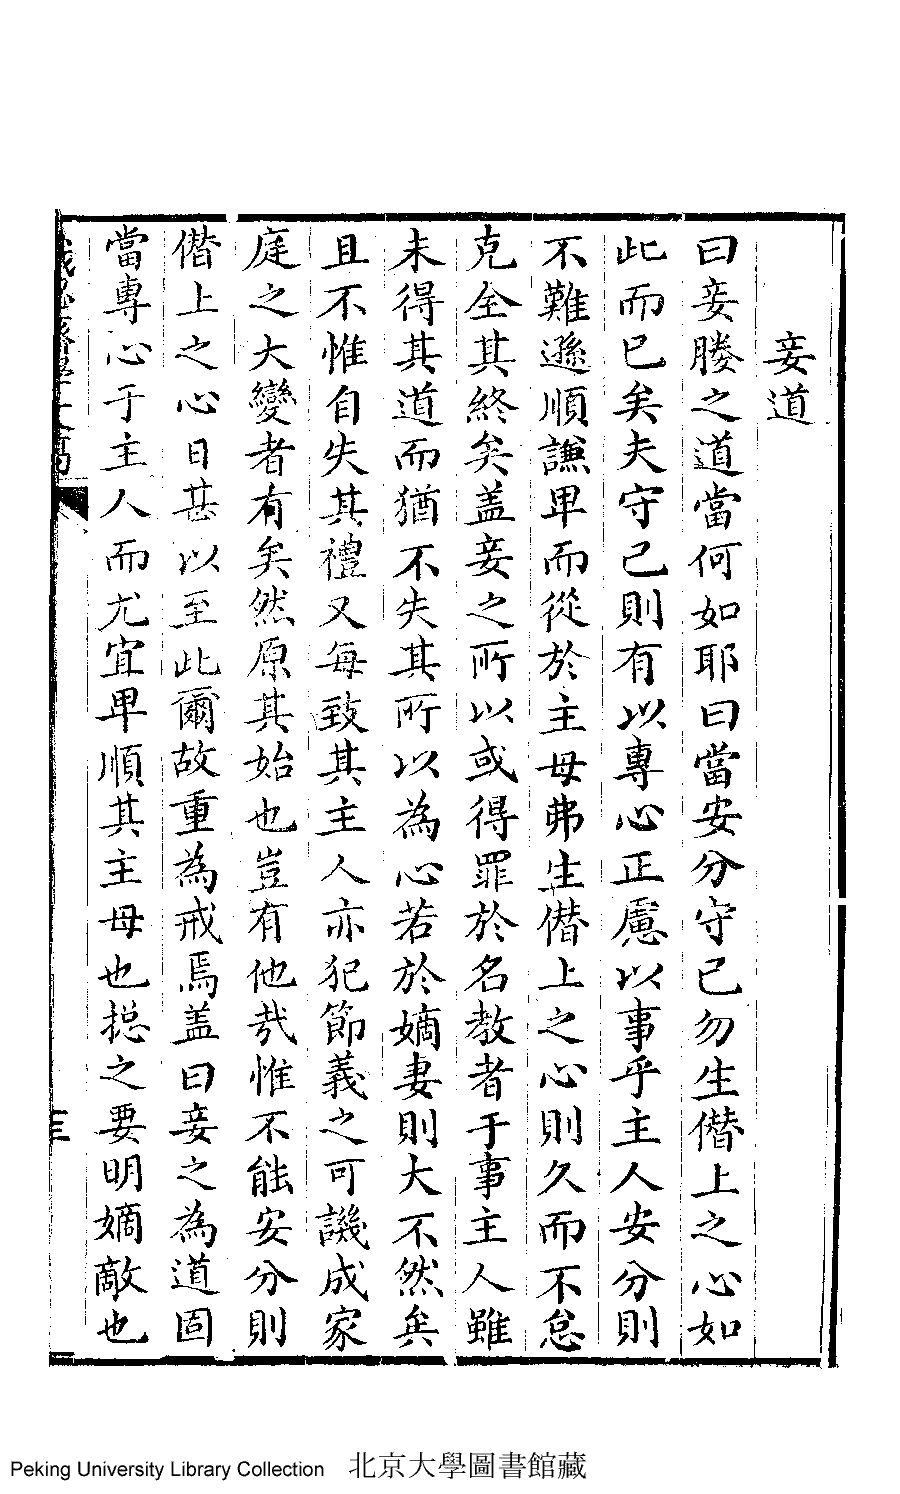 妾道
曰妾媵之道當何如耶曰當安分守己勿生僭上之心如
此而已矣夫守己則有以專心正慮以事乎主人安分則
不難遜順謙卑而從於主母弗生僭上之心則久而不怠
克全其終矣盖妾之所以或得罪於名教者于事主人雖
未得其道而猶不失其所以為心若於嫡妻則大不然矣
且不惟自失其禮又每致其主人亦犯節義之可譏成家
庭之大變者有矣然原其始也豈有他哉惟不能安分則
僭上之心日甚以至此爾故重為戒焉盖曰妾之為道固
當專心于主人而尤宜卑順其主母也揔之要明嫡敵也
三
Peking University Library Collection 北京大學圖書館藏